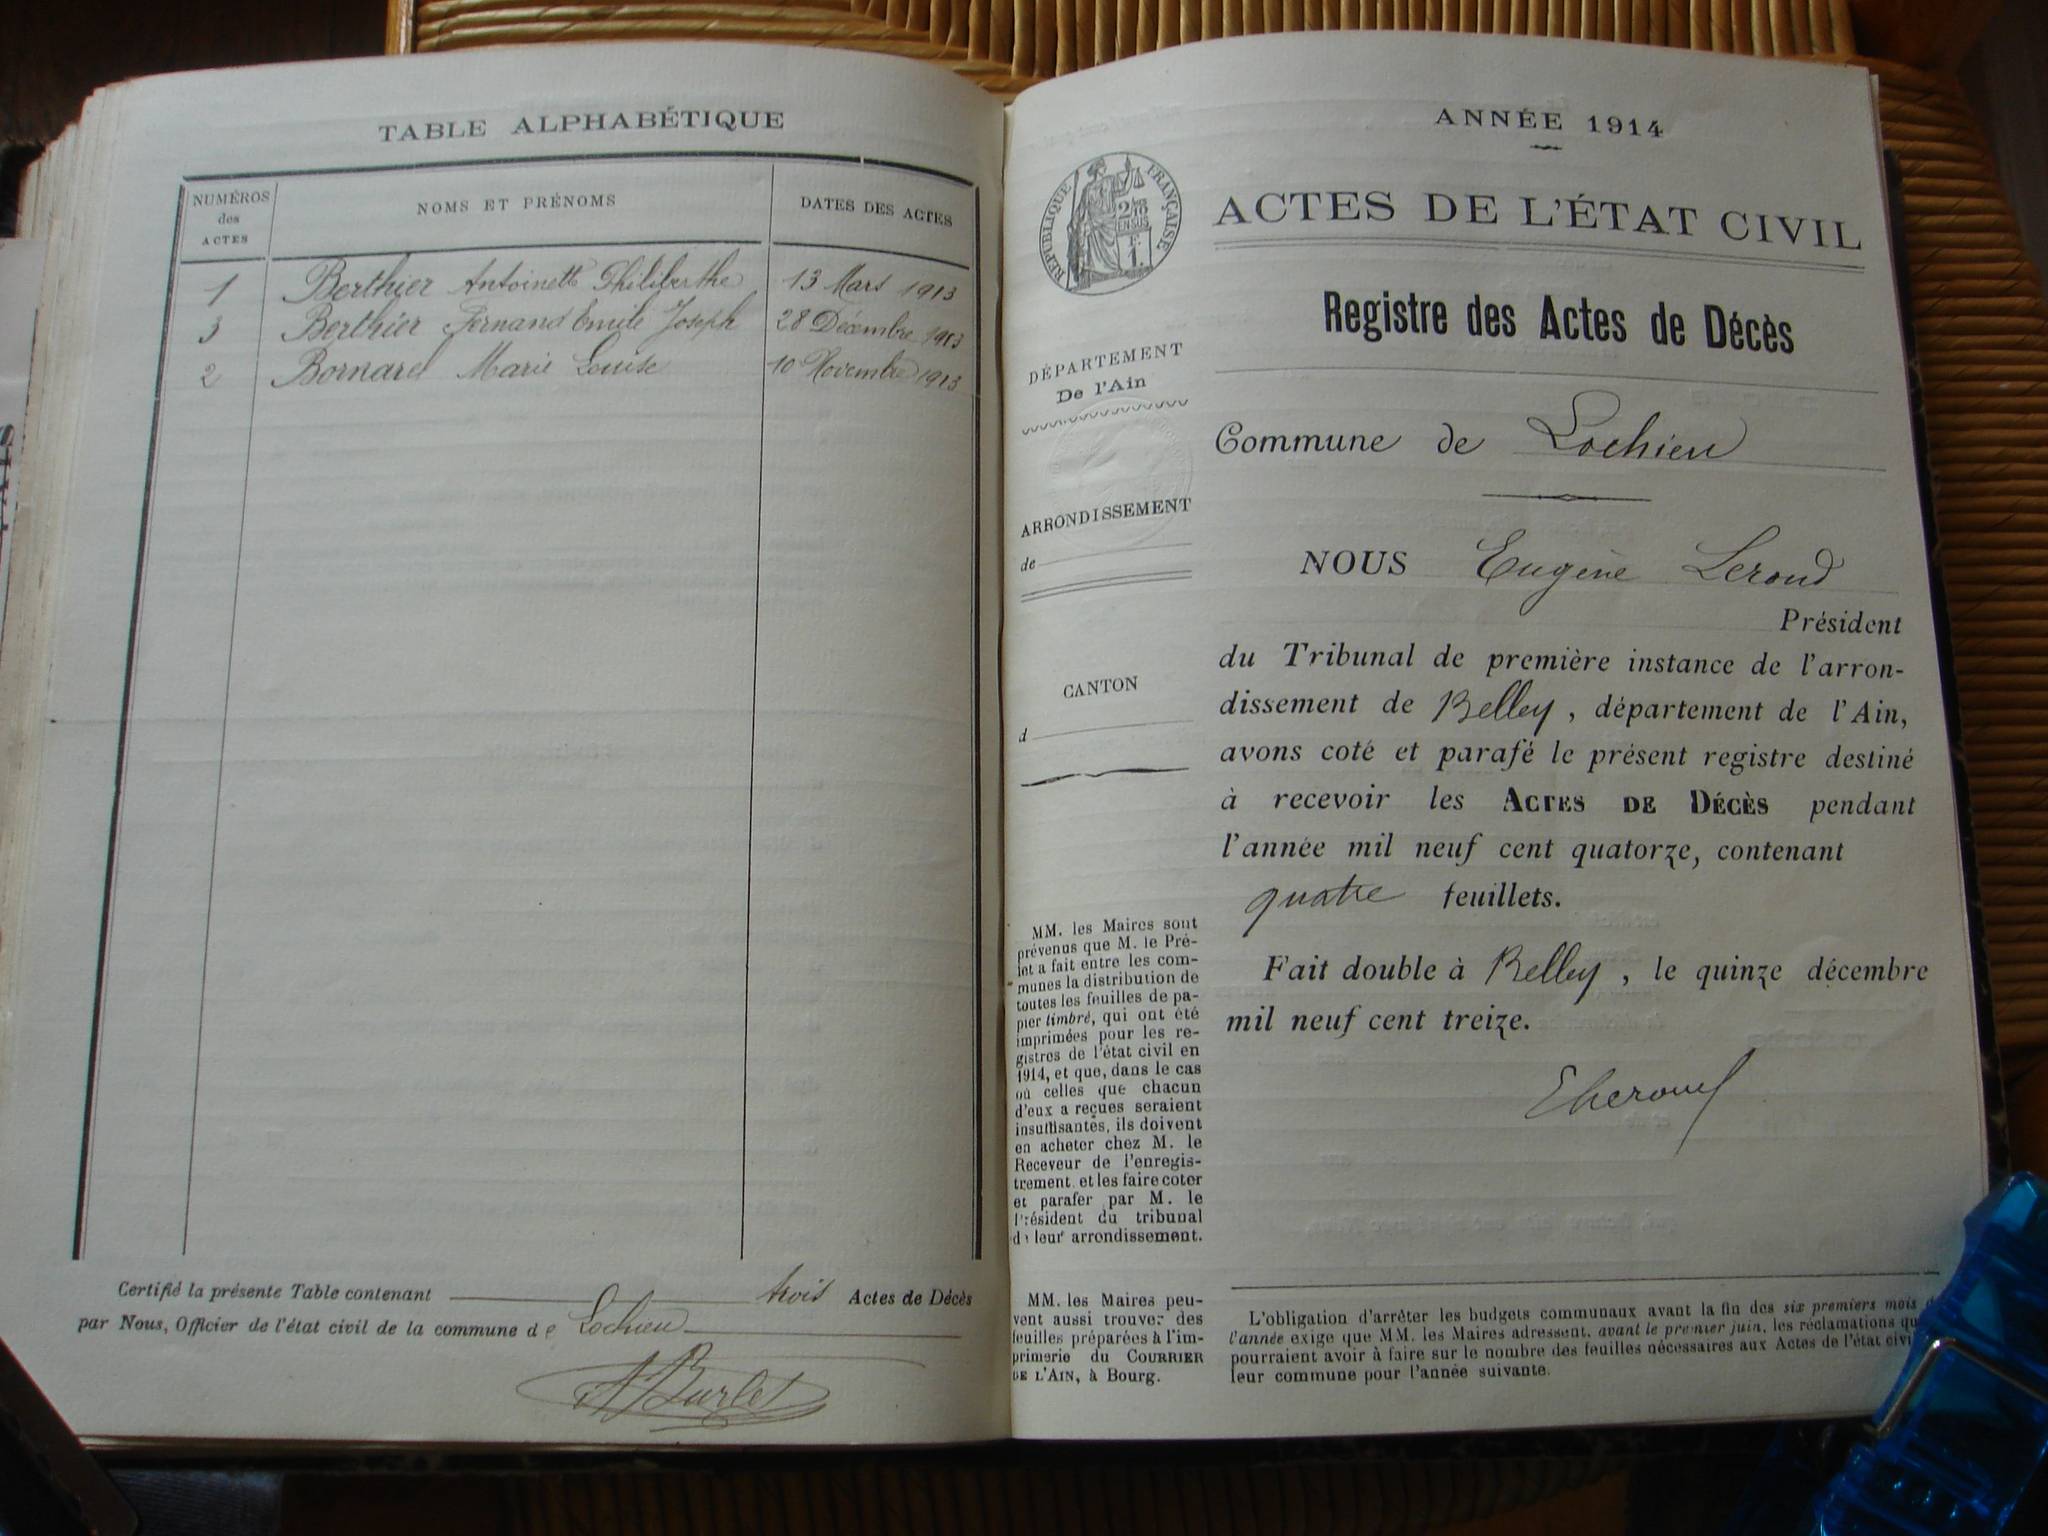 TABLE ALPHABÉTIQUE
NUMÉROS des ACTES NOMS ET PRÉNOMS DATES DES ACTES
1 Berthier Antoinette Philiberthe 13 Mars 1913
3 Berthier Fernand Emile Joseph 28 Décembre 1913
2 Bornarel Marie Louise 10 Novembre 1913
Certifié la présente Table contenant trois Actes de Décès
par Nous, Officier de l'état civil de la commune de Lochieu
Burlet
ANNÉE 1914
RÉPUBLIQUE FRANÇAISE
2/10 EN SUS
F. 1.
ACTES DE L'ÉTAT CIVIL
Registre des Actes de Décès
DÉPARTEMENT
De l'Ain
ARRONDISSEMENT
de
CANTON
d
MM. les Maires sont
prévenus que M. le Pré-
fet a fait entre les com-
munes la distribution de
toutes les feuilles de pa-
pier timbré, qui ont été
imprimées pour les re-
gistres de l'état civil en
1914, et que, dans le cas
où celles que chacun
d'eux a reçues seraient
insuffisantes, ils doivent
en acheter chez M. le
Receveur de l'enregis-
trement. et les faire coter
et parafer par M. le
Président du tribunal
de leur arrondissement.
MM. les Maires peu-
vent aussi trouver des
feuilles préparées à l'im-
primerie du COURRIER
DE L'AIN, à Bourg.
Commune de Lochieu
NOUS Eugène Leroud
Président
du Tribunal de première instance de l'arron-
dissement de Belley, département de l'Ain,
avons coté et parafé le présent registre destiné
à recevoir les ACTES DE DÉCÈS pendant
l'année mil neuf cent quatorze, contenant
quatre feuillets.
Fait double à Belley, le quinze décembre
mil neuf cent treize.
L'obligation d'arrêter les budgets communaux avant la fin des six premiers mois d
l'année exige que MM. les Maires adressent, avant le premier juin, les réclamations qu
pourraient avoir à faire sur le nombre des feuilles nécessaires aux Actes de l'état civi
leur commune pour l'année suivante.